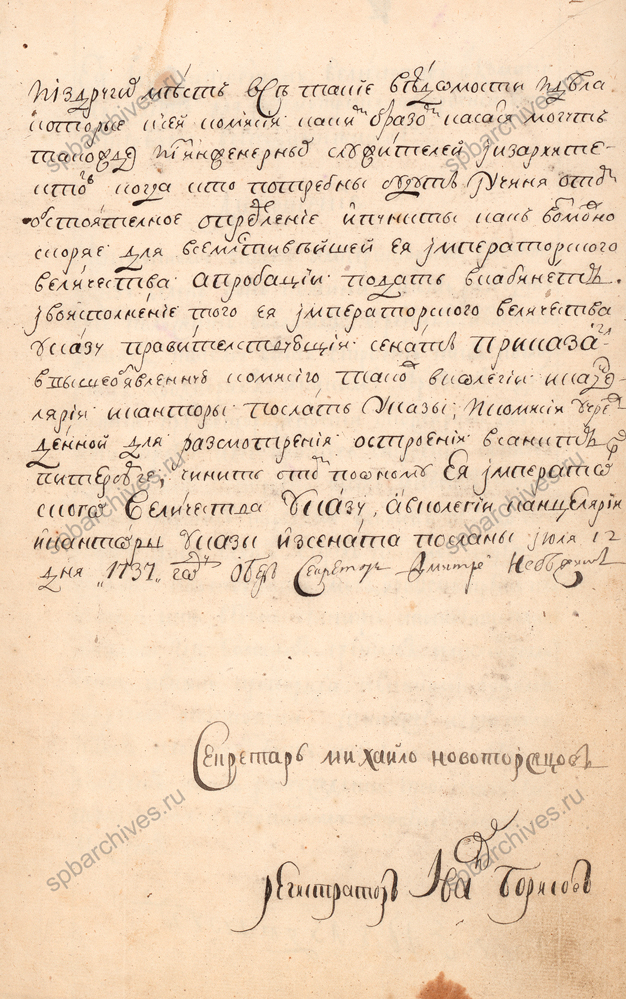 и из других мест все такие ведомости и дела
которые к сей комисии каким образом касатся могут
такожде и инженерных служителей и из архите-
кторов когда кто потребны будут и учиня о том
обстоятелное определение и пункты как возможно
скоряе для всемилостивейшей ея императорского
величества апробации подать в кабинетъ.
и во исполнение того ея императорского величества
указу правителствующий сенатъ приказали
в вышеобъявленную комисию також в колегии и канце-
лярии и канторы послать указы, и комисии учре-
жденной для разсмотрения о строении в санктъ
питербурхе, чинить о том по оному Ея императо
рского Величества Указу, а в колегии канцелярии
и канторы указы из сената посланы июля 12
дня 1737 году Обер Секретарь Дмитрей Невежинъ
Секретарь михайло новоторжцовъ
регистраторъ Иван Борисовъ
spbarchives.ru